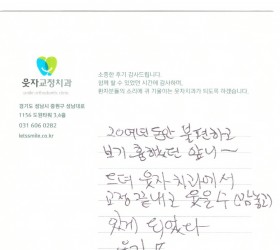 웃자교정치과
소중한 후기 감사드립니다.
함께 할 수 있었던 시간에 감사하며,
환자분들의 소리에 귀 기울이는 웃자치과가 되도록 하겠습니다.
경기도 성남시 중원구 성남대로
1156 도원타워 3,6층
031 606 0282
letssmile.co.kr
20여년 동안 불편하고
보기 흉했던 앞니~
드뎌 웃자치과에서
교정 끝내고 웃을수
있게 되었다